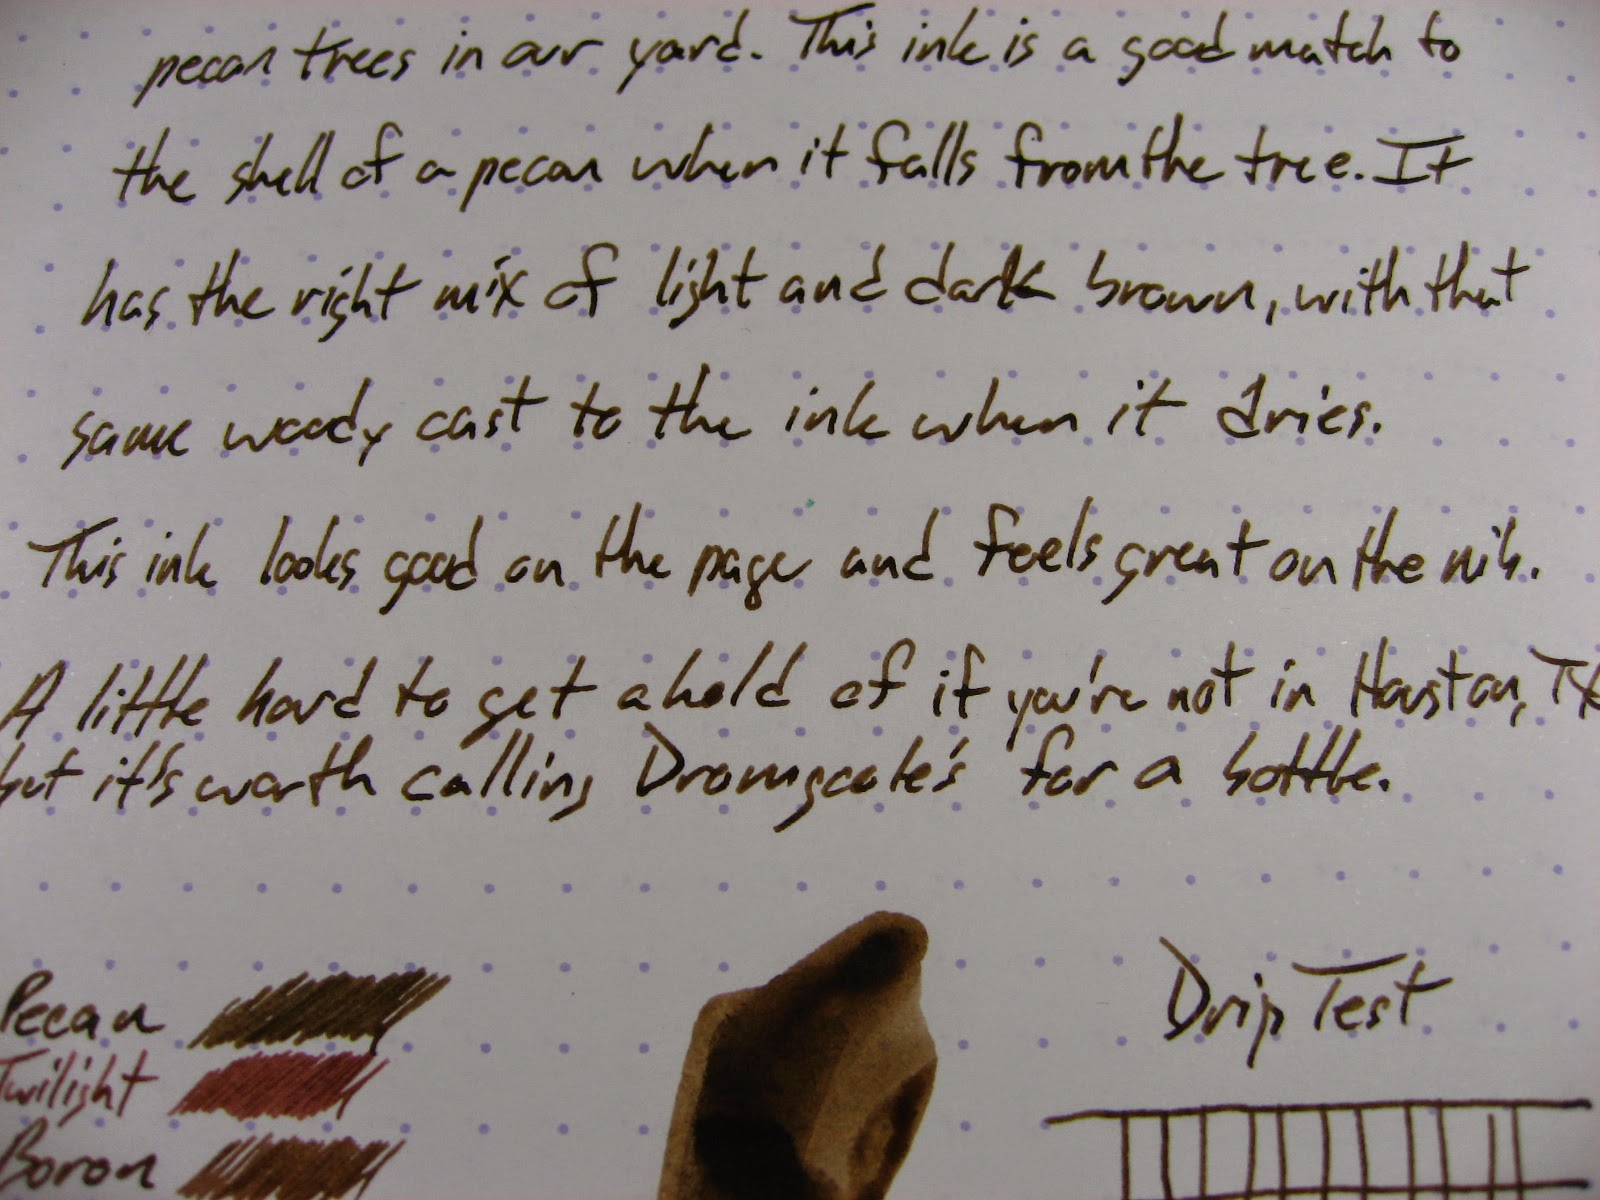 pecan trees in our yard. This ink is a good match to
the shell of a pecan when it falls from the tree. It
has the right mix of light and dark brown, with that
same woody cast to the ink when it dries.
This ink looks good on the page and feels great on the nib.
A little hard to get ahold of if you're not in Houston, TX
but it's worth calling Dromgoole's for a bottle.
Pecan
Drip Test
Twilight
Boron